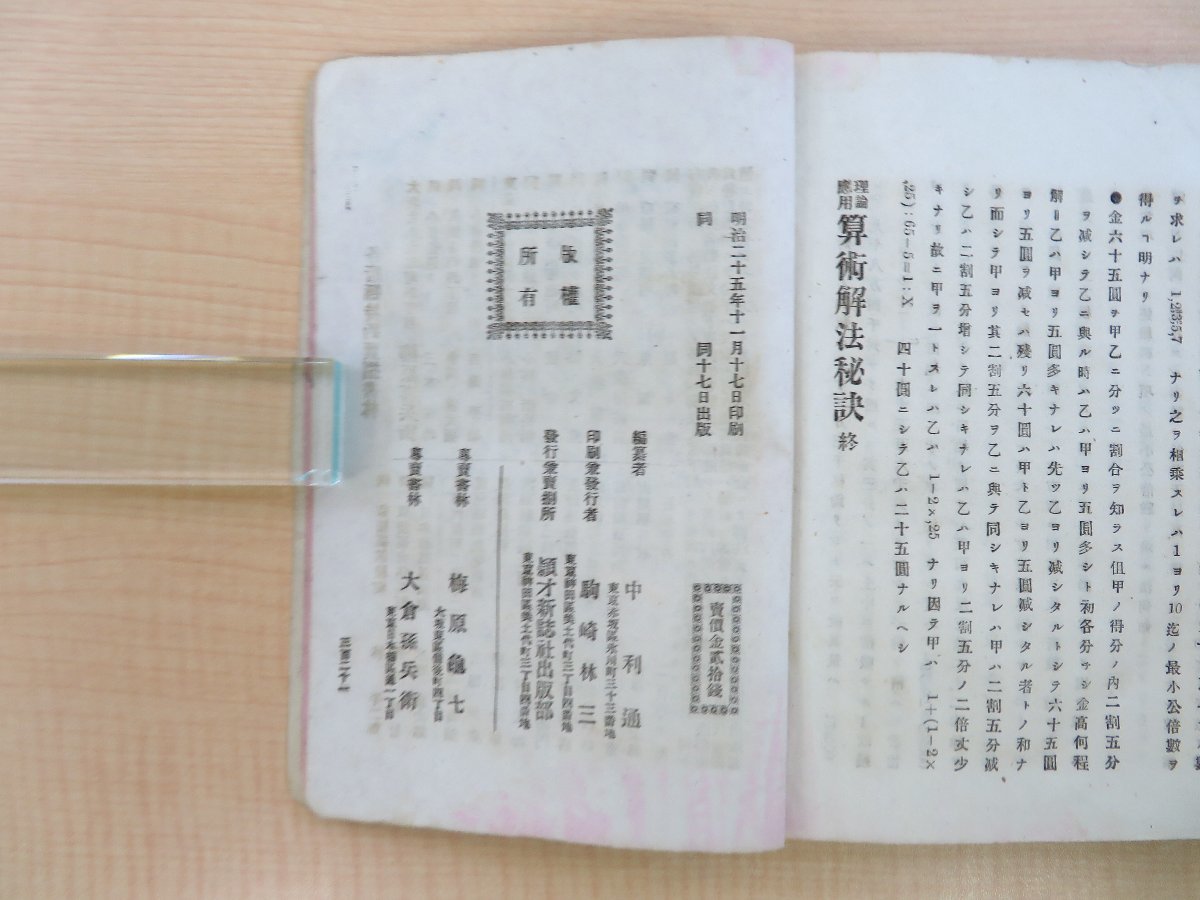 ヲ求レハ 1,2,3,5,7 ナリ之ヲ相乗スレハ1ヨリ10迄ノ最小公倍數ヲ
得ルヿ明ナリ
●金六十五圓ヲ甲乙ニ分ツニ割合ヲ知ラス但甲ノ得分ノ内二割五分
ヲ减シテ乙ニ與ル時ハ乙ハ甲ヨリ五圓多シト初各分テシ金高何程
解＝乙ハ甲ヨリ五圓多キナレハ先ツ乙ヨリ减シタルトシテ六十五圓
ヨリ五圓ヲ减セハ残リ六十圓ハ甲ト乙ヨリ五圓减シタル者トノ和ナ
リ而シテ甲ヨリ其二割五分ヲ乙ニ與テ同シキナレハ甲ハ二割五分减
シ乙ハ二割五分増シテ同シキナレハ乙ハ甲ヨリ二割五分ノ二倍丈少
キナリ故ニ甲ヲ一トスレハ乙ハ 1-2×,25 ナリ因テ甲ハ 1+(1-2×
,25):65-5=1:X 四十圓ニシテ乙ハ二十五圓ナルヘシ
理論應用 算術解法秘訣 終
明治二十五年十一月十七日印刷
同 同十七日出版
賣價金貳拾錢
版權所有
編纂者 中利通
東京赤坂區氷川町三十三番地
印刷兼發行者 駒崎林三
東京神田區美土代町三丁目四番地
發行兼賣捌所 頴才新誌社出版部
東京神田區美土代町三丁目四番地
專賣書林 梅原龜七
大坂東區備後町四丁目
專賣書林 大倉孫兵衛
東京日本橋區通一丁目
三百二十一